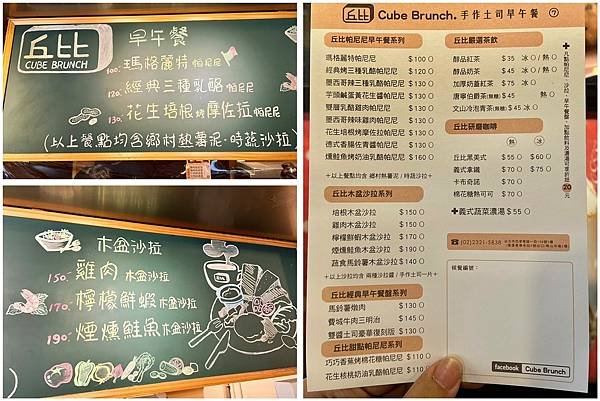 丘比
CUBE BRUNCH
早午餐
100. 瑪格麗特帕尼尼
120. 經典三種乳酪帕尼尼
130. 花生培根烤摩佐拉帕尼尼
(以上餐點均含鄉村熱薯泥、時蔬沙拉)
CUBE BRUNCH
木盆沙拉
150. 雞肉木盆沙拉
170. 檸檬鮮蝦木盆沙拉
190. 煙燻鮭魚木盆沙拉
丘比 Cube Brunch. 手作土司早午餐 ⑦
丘比帕尼尼早午餐系列
瑪格麗特帕尼尼 $100 O
經典烤三種乳酪帕尼尼 $120 O
墨西哥辣三種乳酪帕尼尼 $120 O
芋頭鹹蛋黃花生醬帕尼尼 $120 O
雙層乳酪雞肉帕尼尼 $120 O
墨西哥辣味雞肉帕尼尼 $120 O
花生培根烤摩佐拉帕尼尼 $130 O
德式香腸佐青醬帕尼尼 $130 O
燻鮭魚烤奶油乳酪帕尼尼 $160 O
+以上餐點均含 鄉村熱薯泥 / 時蔬沙拉+
丘比木盆沙拉系列
培根木盆沙拉 $150 O
雞肉木盆沙拉 $150 O
檸檬鮮蝦木盆沙拉 $170 O
煙燻鮭魚木盆沙拉 $190 O
蔬食馬鈴薯木盆沙拉 $140 O
+以上沙拉均含 兩種沙拉醬 / 手作土司一片+
丘比經典早午餐盤系列
馬鈴薯燉肉 $130 O
費城牛肉三明治 $145 O
雙醬土司豪華復刻版 $130 O
丘比甜點帕尼尼系列
巧巧香蕉烤棉花糖帕尼尼 $110 O
花生核桃奶油乳酪帕尼尼 $110 O
丘比嚴選茶飲
醇品紅茶 $35 冰 O / 熱 O
醇品奶茶 $45 冰 O / 熱 O
加厚奶蓋紅茶 $75 冰 O
唐寧伯爵茶(無糖) $45 熱 O
文山冷泡青茶(無糖) $45 冰 O
丘比研磨咖啡
熱 冰
丘比黑美式 $55 O $60 O
義式拿鐵 $70 O $75 O
卡布奇諾 $70 O
棉花糖熱可可 $70 O
✚義式蔬菜濃湯 $55 O
✚凡點帕尼尼、沙拉、早午餐餐盤,加點飲料及濃湯可享折抵20元
(02)2321-5838
候餐編號:
facebook Cube Brunch